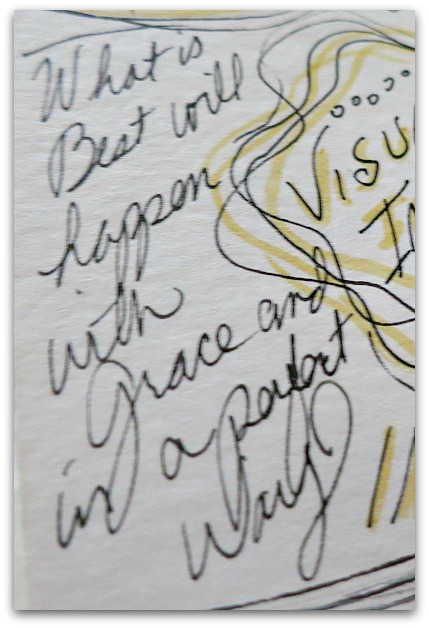 What is
Best will
happen
with
Grace and
in a perfect
Way
VISU